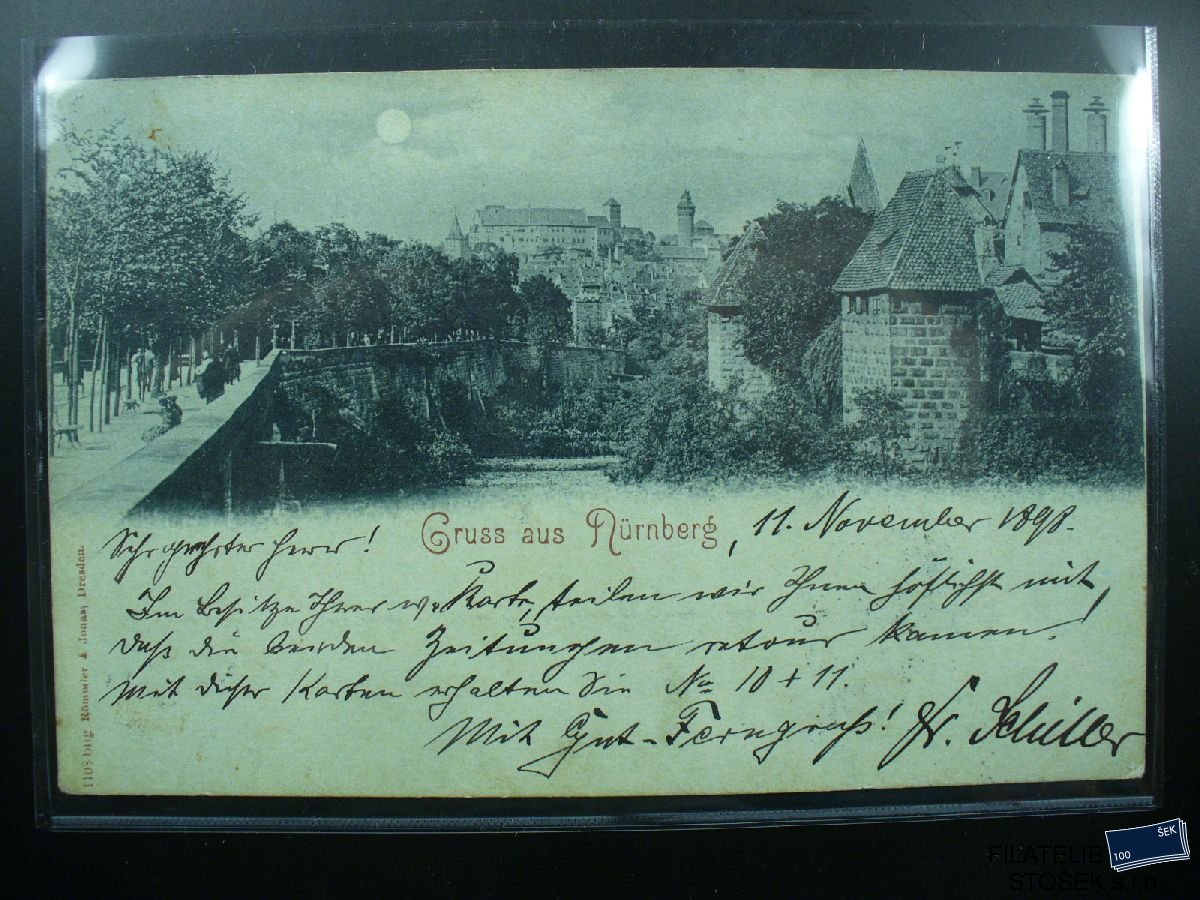 Gruss aus Nürnberg, 11. November 1898.
Sehr geehrter Herr!
Im Besitze Ihrer w. Karte, teilen wir Ihnen höflichst mit,
daß die beiden Zeitungen retour kamen.
Mit dieser Karten erhalten Sie No 10 + 11.
Mit Gut-Ferngruß! Fr. Schiller
1108 blg Römmler & Jonas, Dresden.
100 ŠEK
FILATELIE
STOŠEK s.r.o.